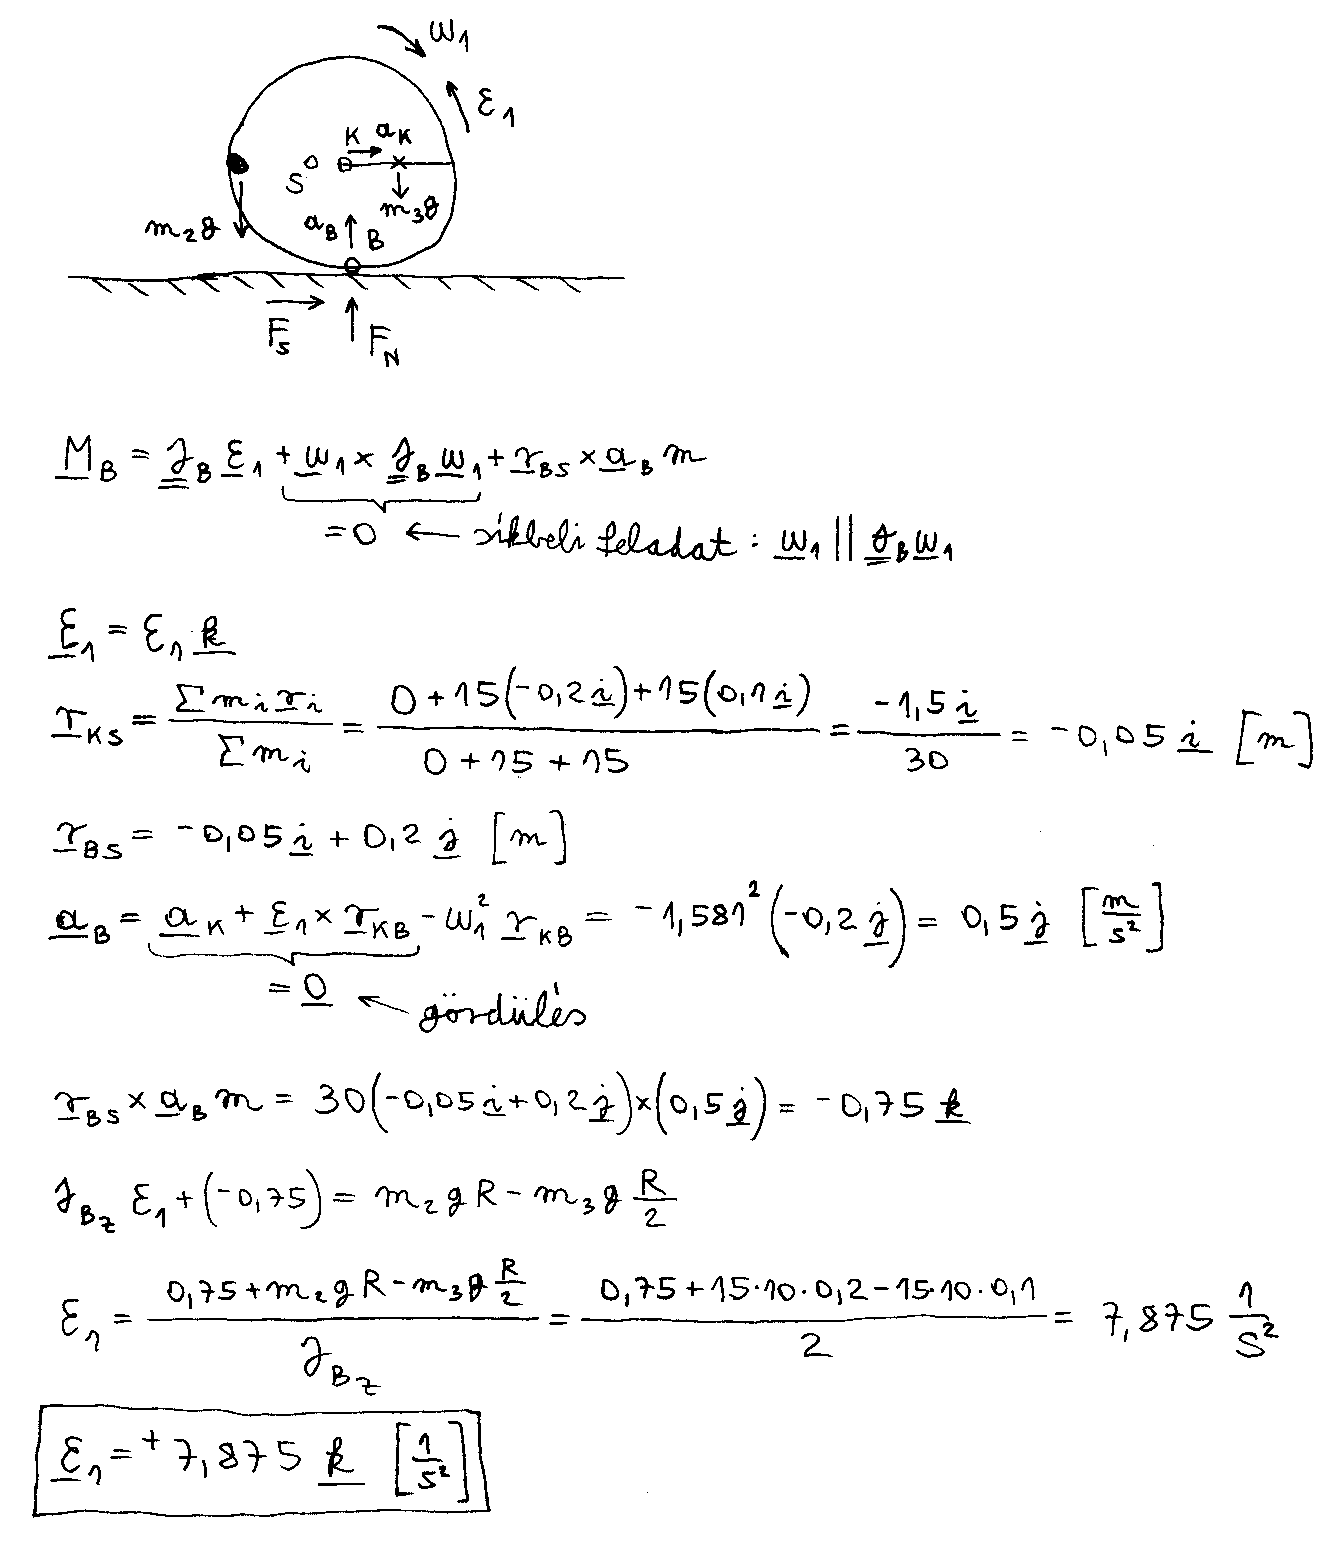 ω₁
ε₁
K a_K
S
m₃g
m₂g
a_B B
F_S
F_N
M_B = J_B ε₁ + ω₁ × J_B ω₁ + r_BS × a_B m
= 0 ← síkbeli feladat : ω₁ || J_B ω₁
ε₁ = ε₁ k
r_KS = Σ m_i r_i / Σ m_i = (0 + 15(-0,2 i) + 15(0,1 i)) / (0 + 15 + 15) = -1,5 i / 30 = -0,05 i [m]
r_BS = -0,05 i + 0,2 j [m]
a_B = a_K + ε₁ × r_KB - ω₁² r_KB = -1,581² (-0,2 j) = 0,5 j [m/s²]
= 0 ← gördülés
r_BS × a_B m = 30(-0,05 i + 0,2 j) × (0,5 j) = -0,75 k
J_Bz ε₁ + (-0,75) = m₂ g R - m₃ g R/2
ε₁ = (0,75 + m₂ g R - m₃ g R/2) / J_Bz = (0,75 + 15·10·0,2 - 15·10·0,1) / 2 = 7,875 1/s²
ε₁ = +7,875 k [1/s²]